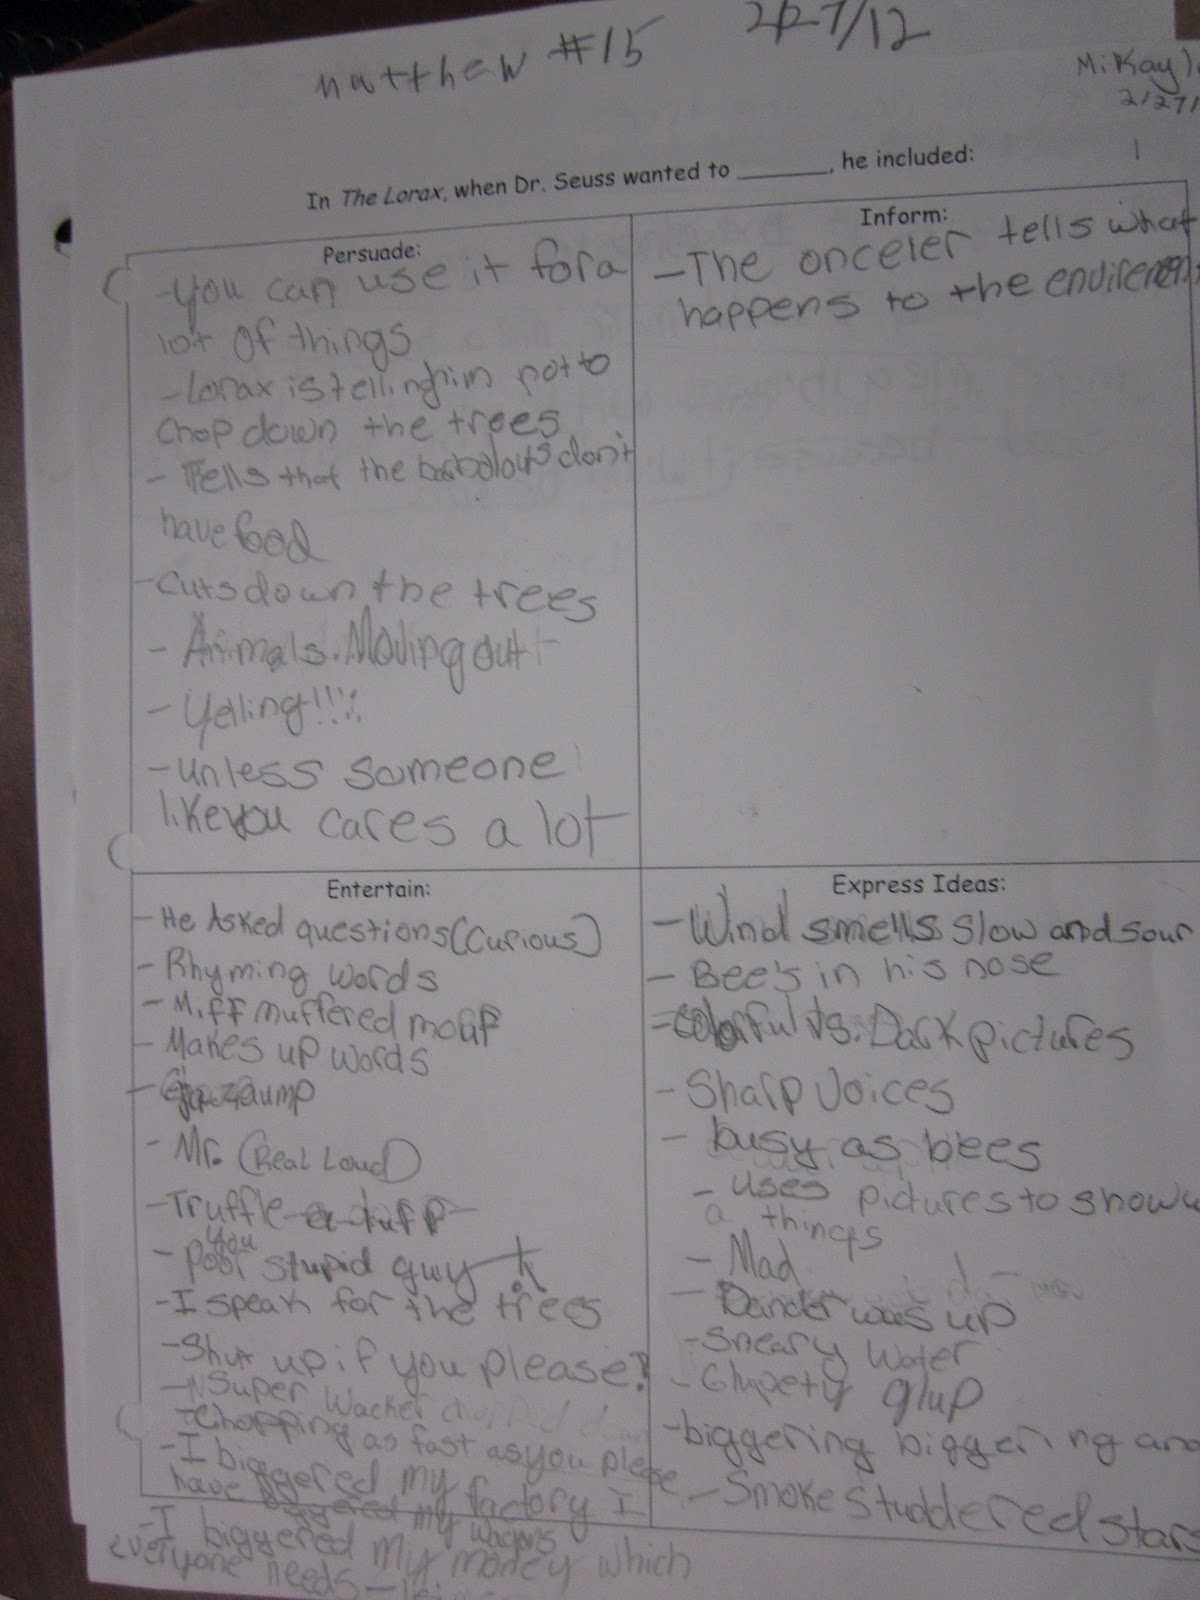 matthew #15 2/27/12
Mikayla
2/27/
1
In The Lorax, when Dr. Seuss wanted to ______, he included:
Persuade:
-you can use it for a
lot of things
-Lorax is telling him not to
chop down the trees
- Tells that the barbalouts don't
have food
-cuts down the trees
- Animals. Moving out
- Yelling!!!!
-unless someone
like you cares a lot
Inform:
-The onceler tells what
happens to the
Entertain:
-He Asked questions (Curious)
-Rhyming words
-Miff muffered mouf
-Makes up words
- Gazaump
- Mr. (Real Loud)
-Truffle a tuff
- poor you stupid guy
-I speak for the trees
-Shut up if you please!
-Super Wacker
-Chopping as fast as you please
-I biggered my factory I
have biggered my wagons
-I biggered my money which
everyone needs-
Express Ideas:
-Wind smells slow and sour
- Bee's in his nose
-colorful vs. Dark pictures
- Sharp Voices
- busy as bees
- uses pictures to show
a things
- Mad
- Dander was up
-Smeary Water
-Glupety glup
-biggering biggering and
-Smoke Studdered stars